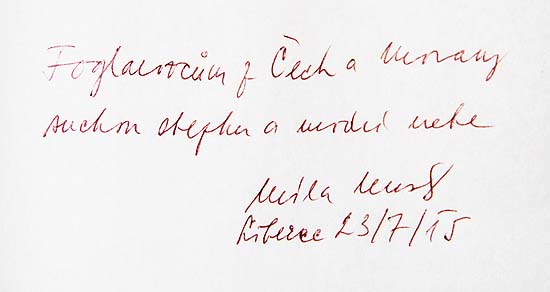 Foglarovcům z Čech a Moravy
suchou stepku a modré nebe
Míla
Liberec 23/7/15